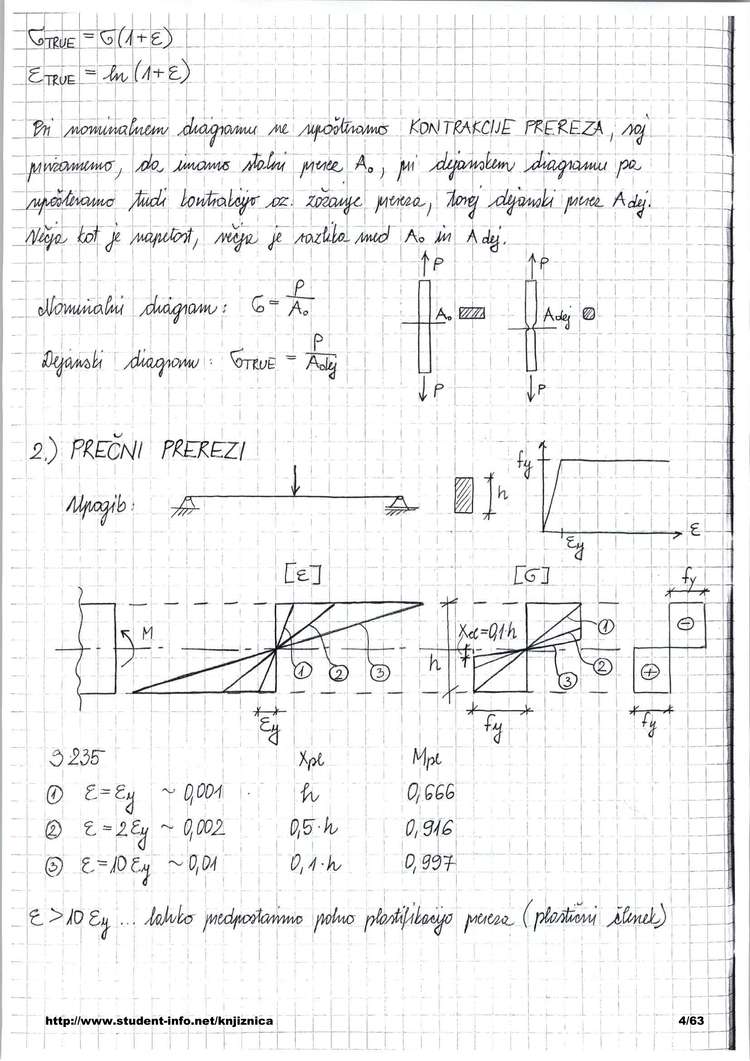 σTRUE = σ(1+ε)
εTRUE = ln(1+ε)
Pri nominalnem diagramu ne upoštevamo KONTRAKCIJE PREREZA, saj
privzamemo, da imamo stalni prerez A₀, pri dejanskem diagramu pa
upoštevamo tudi kontrakcijo oz. zožanje prereza, torej dejanski prerez Adej.
Večja kot je napetost, večja je razlika med A₀ in Adej.
Nominalni diagram: σ = P/A₀
Dejanski diagram: σTRUE = P/Adej
P P
A₀ Adej
P P
2.) PREČNI PREREZI
Upogib:
h
fy
εy
ε
[ε] [σ]
fy
M
1 2 3
h
Xel=0,1·h
1
2
3
- +
εy fy fy
S 235 Xpl Mpl
1 ε=εy ~ 0,001 h 0,666
2 ε=2εy ~ 0,002 0,5·h 0,916
3 ε=10εy ~ 0,01 0,1·h 0,997
ε>10εy ... lahko predpostavimo polno plastifikacijo prereza (plastični členek)
http://www.student-info.net/knjiznica 4/63